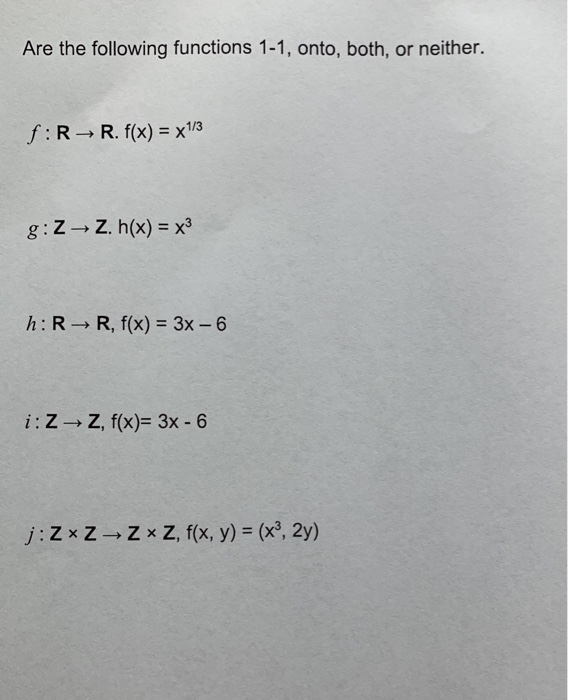 Are the following functions 1-1, onto, both, or neither.
f : R → R. f(x) = x^{1/3}
g : Z → Z. h(x) = x³
h : R → R, f(x) = 3x – 6
i : Z → Z, f(x)= 3x - 6
j : Z × Z → Z × Z, f(x, y) = (x³, 2y)